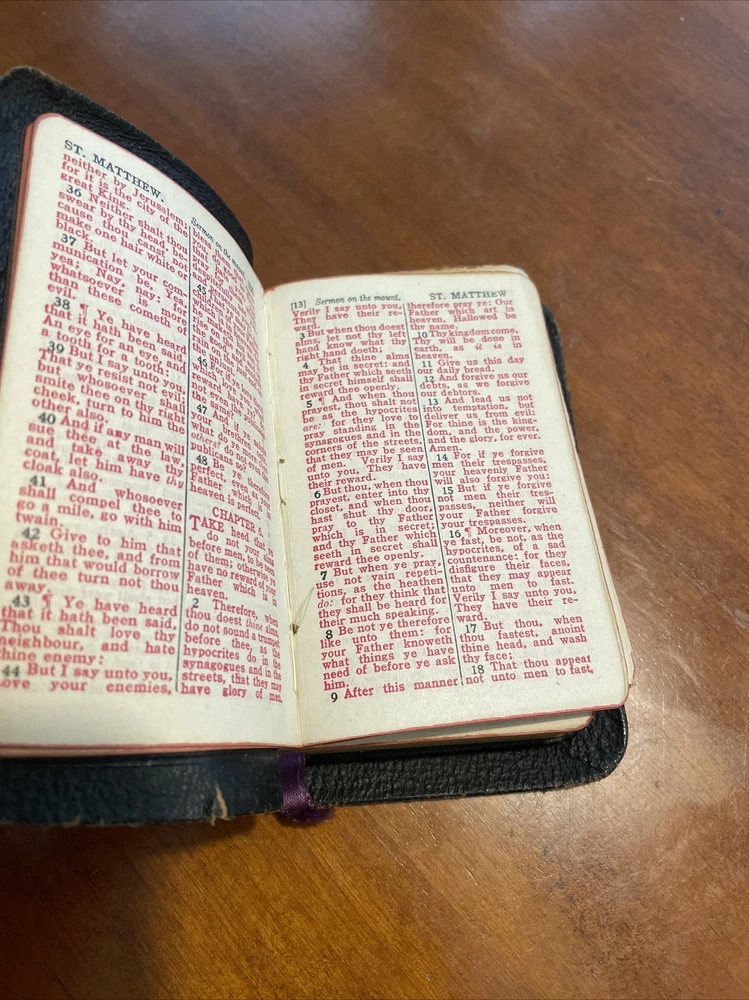 ST. MATTHEW.
neither by Jerusalem;
for it is the city of the
great King.
36 Neither shalt thou
swear by thy head, be-
cause thou canst not
make one hair white or
black.
37 But let your com-
munication be, Yea,
yea; Nay, nay: for
whatsoever is more
than these cometh of
evil.
38 ¶ Ye have heard
that it hath been said,
An eye for an eye and
a tooth for a tooth:
39 But I say unto you,
That ye resist not evil:
but whosoever shall
smite thee on thy right
cheek, turn to him the
other also.
40 And if any man will
sue thee at the law,
and take away thy
coat, let him have thy
cloak also.
41 And whosoever
shall compel thee to
go a mile, go with him
twain.
42 Give to him that
asketh thee, and from
him that would borrow
of thee turn not thou
away.
43 ¶ Ye have heard
that it hath been said,
Thou shalt love thy
neighbour, and hate
thine enemy:
44 But I say unto you,
Love your enemies,
Sermon on the mount.
bless them
45
46 For if ye
47 And if ye
your breth
what do ye
others? do
publicans so?
48 Be ye therefore
perfect, even as your
Father which is in
heaven is perfect.
CHAPTER 6.
TAKE heed that ye
do not your alms
before men, to be seen
of them: otherwise ye
have no reward of your
Father which is in
heaven.
2 Therefore, when
thou doest thine alms,
do not sound a trumpet
before thee, as the
hypocrites do in the
synagogues and in the
streets, that they may
have glory of men.
[13] Sermon on the mount.
Verily I say unto you,
They have their re-
ward.
3 But when thou doest
alms, let not thy left
hand know what thy
right hand doeth;
4 That thine alms
may be in secret: and
thy Father which seeth
in secret himself shall
reward thee openly.
5 ¶ And when thou
prayest, thou shalt not
be as the hypocrites
are: for they love to
pray standing in the
synagogues and in the
corners of the streets,
that they may be seen
of men. Verily I say
unto you, They have
their reward.
6 But thou, when thou
prayest, enter into thy
closet, and when thou
hast shut thy door,
pray to thy Father
which is in secret;
and thy Father which
seeth in secret shall
reward thee openly.
7 But when ye pray,
use not vain repeti-
tions, as the heathen
do: for they think that
they shall be heard for
their much speaking.
8 Be not ye therefore
like unto them: for
your Father knoweth
what things ye have
need of before ye ask
him.
9 After this manner
ST. MATTHEW
therefore pray ye: Our
Father which art in
heaven, Hallowed be
thy name.
10 Thy kingdom come.
Thy will be done in
earth, as it is in
heaven.
11 Give us this day
our daily bread.
12 And forgive us our
debts, as we forgive
our debtors.
13 And lead us not
into temptation, but
deliver us from evil:
For thine is the king-
dom, and the power,
and the glory, for ever.
Amen.
14 For if ye forgive
men their trespasses,
your heavenly Father
will also forgive you:
15 But if ye forgive
not men their tres-
passes, neither will
your Father forgive
your trespasses.
16 ¶ Moreover, when
ye fast, be not, as the
hypocrites, of a sad
countenance: for they
disfigure their faces,
that they may appear
unto men to fast.
Verily I say unto you,
They have their re-
ward.
17 But thou, when
thou fastest, anoint
thine head, and wash
thy face;
18 That thou appear
not unto men to fast,